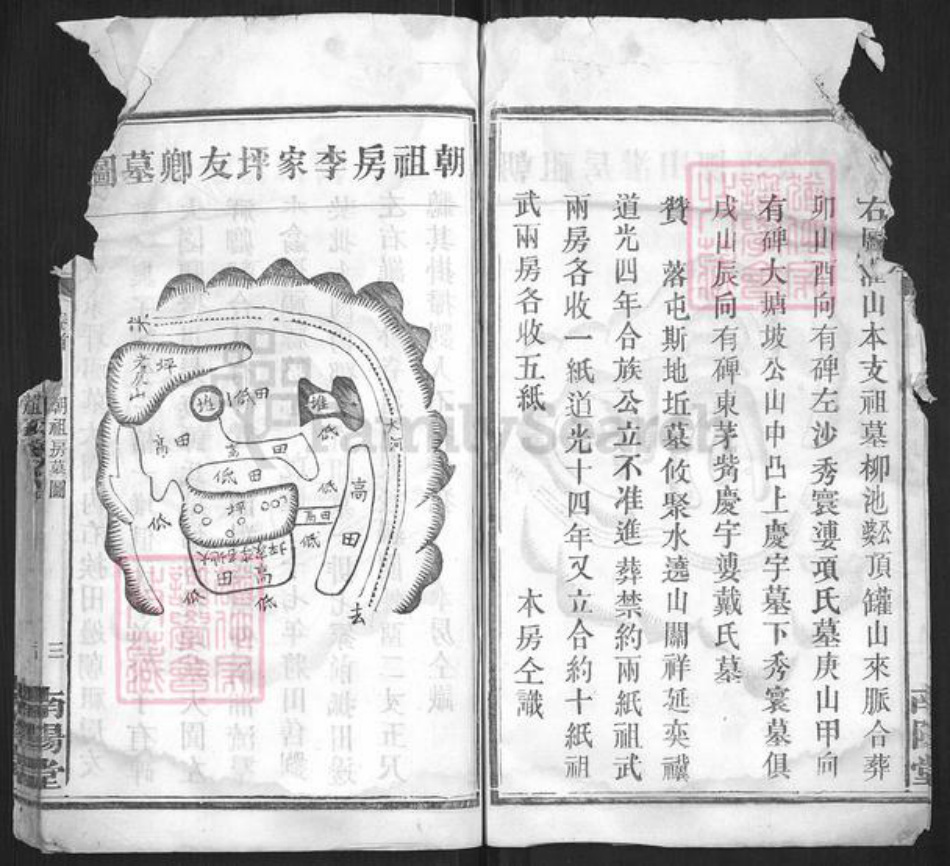 右圖淮山本支祖墓柳池㙡頂罐山來脈合葬
卯山酉向有碑左沙秀寰婆項氏墓庚山甲向
有碑大塘坡公山申凸上慶宇墓下秀寰墓俱
戌山辰向有碑東茅觜慶宇婆戴氏墓
贊 落屯斯地坵墓攸聚水遶山關祥延奕禩
道光四年合族公立不准進葬禁約兩紙祖武
兩房各收一紙道光十四年又立合約十紙祖
武兩房各收五紙 本房仝識
朝祖房李家坪友鄉墓圖
來
老虎山
坪
堆
低田
堆
低
大河
高田
高
田
低田
低
高田
坪
高田
低
低
坪李家名地大
高田
低
低
去
朝祖房墓圖
三
南陽堂
南陽堂
FamilySearch